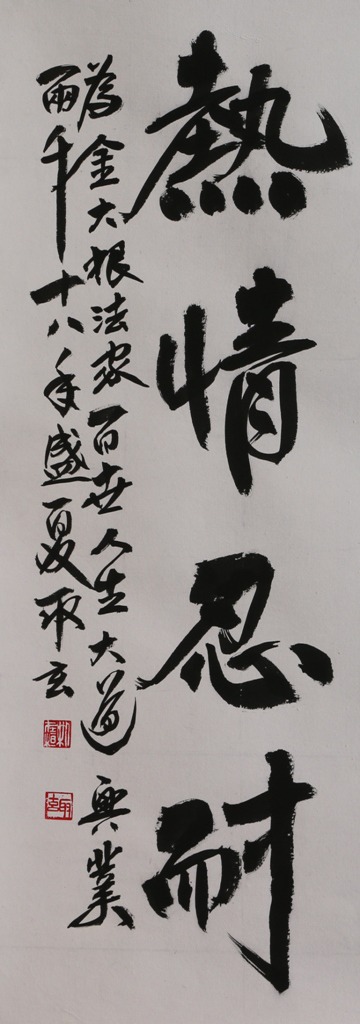 熱情忍耐
為金大根法家百世人生大道興業
兩千十八年盛夏取玄